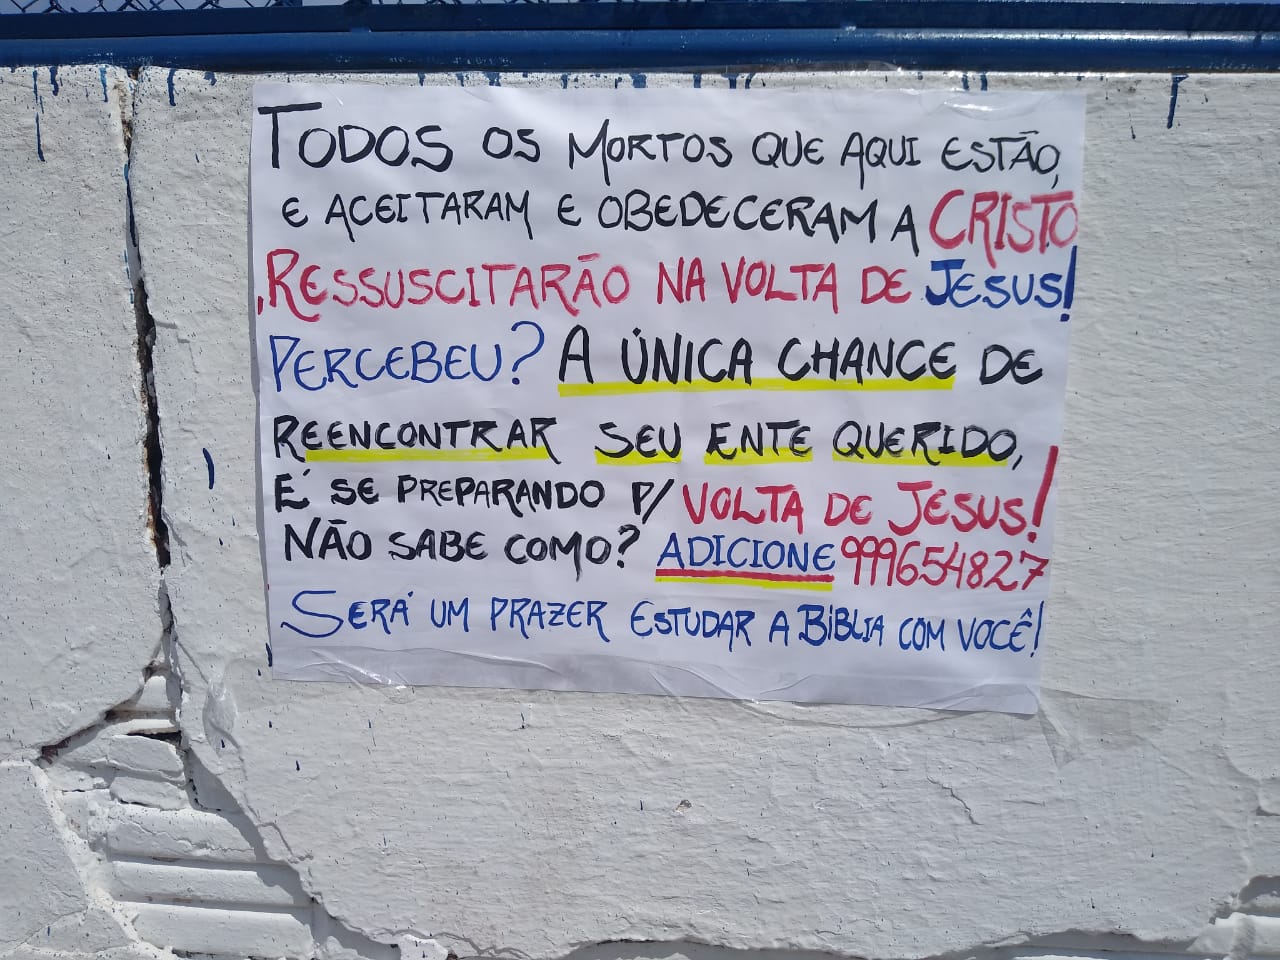 TODOS OS MORTOS QUE AQUI ESTÃO,
E ACEITARAM E OBEDECERAM A CRISTO
RESSUSCITARÃO NA VOLTA DE JESUS!
PERCEBEU? A ÚNICA CHANCE DE
REENCONTRAR SEU ENTE QUERIDO,
É SE PREPARANDO P/ VOLTA DE JESUS!
NÃO SABE COMO? ADICIONE 999654827
SERÁ UM PRAZER ESTUDAR A BÍBLIA COM VOCÊ!